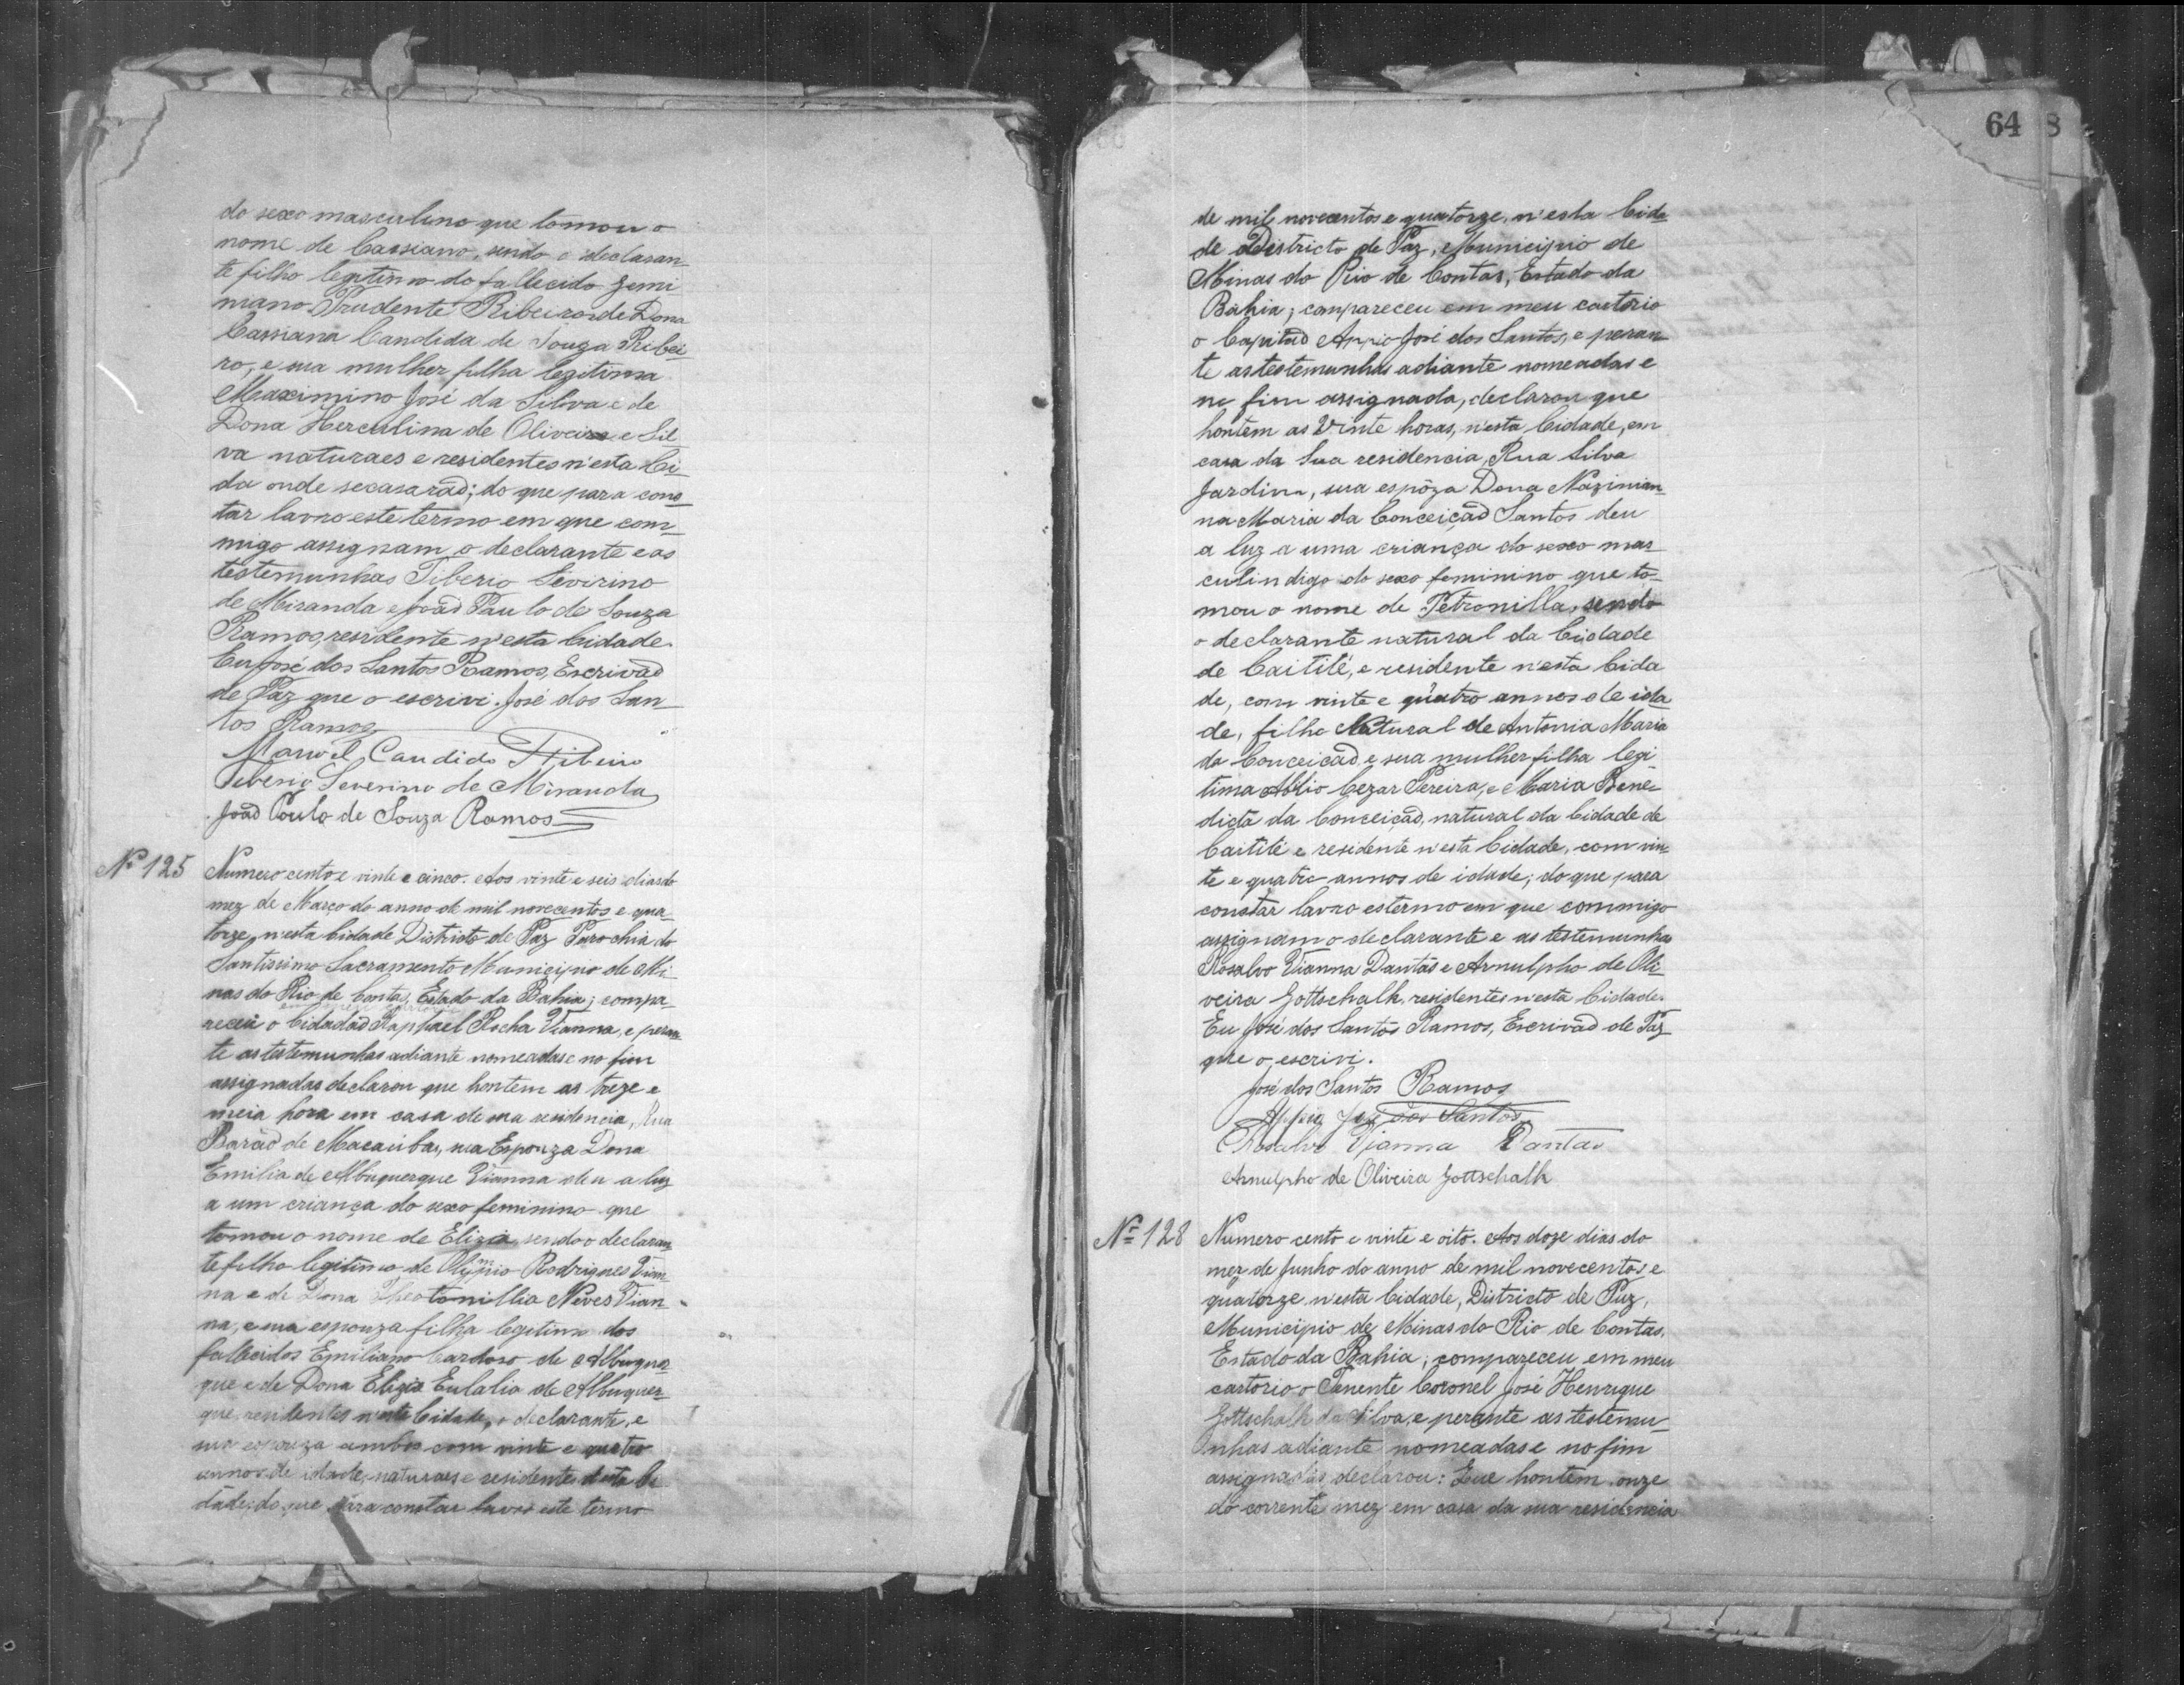 do sexo masculino que tomou o
nome de Cassiano, sendo o declaran-
te filho legitimo do fallecido Gemi
niano Prudente Ribeiro e de Dona
Cassiana Candida de Souza Ribei
ro, e sua mulher filha legitima
Maximino José da Silva e de
Dona Herculina de Oliveira e Sil
va naturaes e residentes n'esta Ci
da onde se casarão; do que para cons
tar lavro este termo em que com-
migo assignam o declarante e as
testemunhas Tiberio Severino
de Miranda e João Paulo de Souza
Ramos, residente n'esta Cidade.
Eu José dos Santos Ramos, Escrivão
de Paz que o escrivi. José dos San
tos Ramos
Manoel Candido Ribeiro
Tiberio Severino de Miranda
João Paulo de Souza Ramos
Nº 125 Numero cento e vinte e cinco. Aos vinte e seis dias do
mez de Março do anno de mil novecentos e qua-
torze, n'esta Cidade Districto de Paz Parochia do
Santissimo Sacramento Municipio de Mi
nas do Rio de Contas, Estado da Bahia; compa-
receu o Cidadão Raphael Rocha Vianna, e peran
te as testemunhas adiante nomeadas e no fim
assignadas declarou que hontem as treze e
meia hora em casa de sua residencia, Rua
Barão de Macaúbas, sua Espouza Dona
Emilia de Albuquerque Vianna deu a luz
a um criança do sexo feminino que
tomou o nome de Eliza, sendo o declaran
te filho legitimo de Olimpio Rodrigues Vian
na e de Dona Theotonillia Neves Vian
na, e sua espouza filha legitima dos
fallecidos Emiliano Cardoso de Albuquer
que e de Dona Eliza Eulalia de Albuquer
que, residentes n'esta Cidade, o declarante, e
sua espouza ambos com vinte e quatro
annos de idade, naturaes e residentes desta Ci
dade; do que para constar lavro este termo
64 8
de mil novecentos e quatorze, n'esta Cida
de Districto de Paz, Municipio de
Minas do Rio de Contas, Estado da
Bahia; compareceu em meu cartorio
o Capitão Appio José dos Santos, e peran
te as testemunhas adiante nomeadas e
no fim assignada, declarou que
hontem as Vinte horas, n'esta Cidade, em
casa da Sua residencia, Rua Silva
Jardim, sua espôza Dona Mazimian
na Maria da Conceição Santos deu
a luz a uma criança do sexo mas
culin digo do sexo feminino que to-
mou o nome de Petronilla, sendo
o declarante natural da Cidade
de Caitité, e residente n'esta Cida
de, com vinte e quatro annos de ida
de, filho Natural de Antonia Maria
da Conceicão, e sua mulher filha legi
tima Abilio Cezar Pereira, e Maria Bene-
dicta da Conceição, natural da Cidade de
Caitité e residente n'esta Cidade, com vin
te e quatro annos de idade; do que para
constar lavro estermo em que commigo
assignam o declarante e as testemunhas
Rosalvo Vianna Dantas e Arnulpho de Oli
veira Gottschalk, residentes n'esta Cidade.
Eu José dos Santos Ramos, Escrivão de Paz
que o escrivi.
José dos Santos Ramos
Appio José dos Santos
Rosalvo Vianna Dantas
Arnulpho de Oliveira Gottschalk
Nº 128 Numero cento e vinte e oito. Aos doze dias do
mez de Junho do anno de mil novecentos e
quatorze n'esta Cidade, Districto de Paz,
Municipio de Minas do Rio de Contas,
Estado da Bahia; compareceu em meu
cartorio o Tenente Coronel José Henrique
Gottschalk da Silva, e perante as testemu-
nhas adiante nomeadas e no fim
assignadas declarou: Que hontem onze
do corrente mez em casa da sua residencia